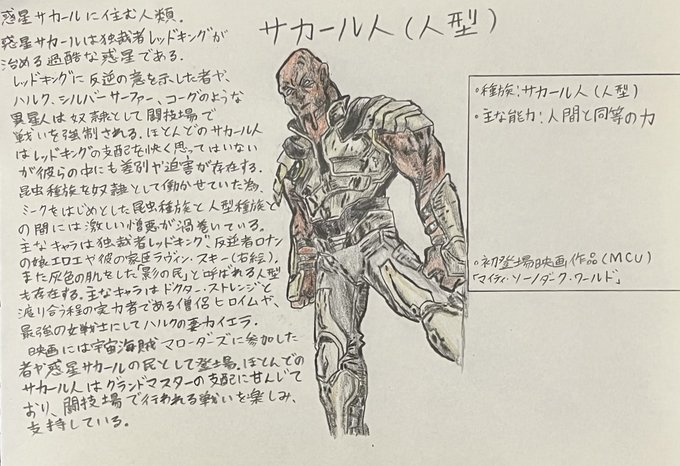 惑星サカールに住む人類.
惑星サカールは独裁者レッドキングが
治める過酷な惑星である.
レッドキングに反逆の意を示した者や、
ハルク、シルバーサーファー、コーグのような
異星人は奴隷として闘技場で
戦いを強制される.ほとんどのサカール人
はレッドキングの支配を快く思ってはいない
が彼らの中にも差別や迫害が存在する.
昆虫種族を奴隷として働かせていた為、
ミークをはじめとした昆虫種族と人型種族と
の間には激しい憎悪が渦巻いている.
主なキャラは独裁者レッドキング、反逆者ロナン
の娘エロエや彼の家臣ラヴィン・スキー(右絵).
また灰色の肌をした「影の民」と呼ばれる人型
も存在する.主なキャラはドクター・ストレンジと
渡り合う程の実力者である僧侶ヒロイムや、
最強の女戦士にしてハルクの妻カイエラ.
映画には宇宙海賊マローダーズに参加した
者や惑星サカールの民として登場.ほとんどの
サカール人はグランドマスターの支配に甘んじて
おり、闘技場で行われる戦いを楽しみ、
支持している。
サカール人(人型)
・種族:サカール人(人型)
・主な能力:人間と同等の力
・初登場映画作品(MCU)
「マイティ・ソー/ダーク・ワールド」